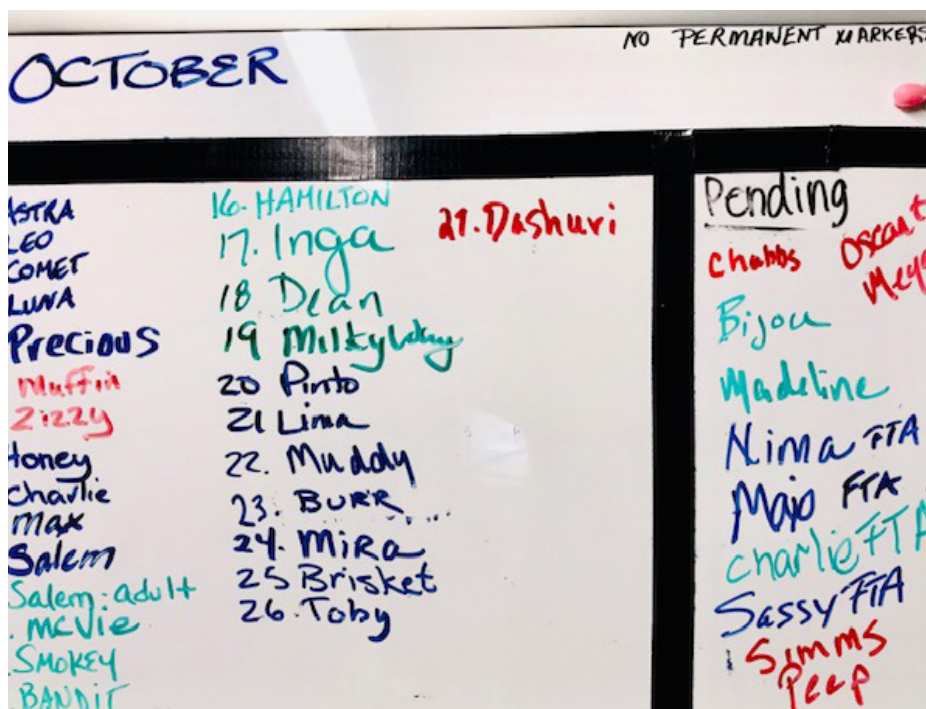 OCTOBER
NO PERMANENT MARKERS
ASTRA
LEO
COMET
LUNA
Precious
Muffin
Zizzy
Honey
Charlie
Max
Salem
Salem: adult
. McVie
. SMOKEY
. BANDIT
16. HAMILTON
17. Inga
18 Dean
19 MilkyWay
20 Pinto
21 Lima
22. Muddy
23. BURR
24. Mira
25 Brisket
26. Toby
27. Dashuri
Pending
Chabbs
Oscar +
Bijou
Madeline
Nima FTA
FTA
Charlie FTA
Sassy FTA
Simms
Peep